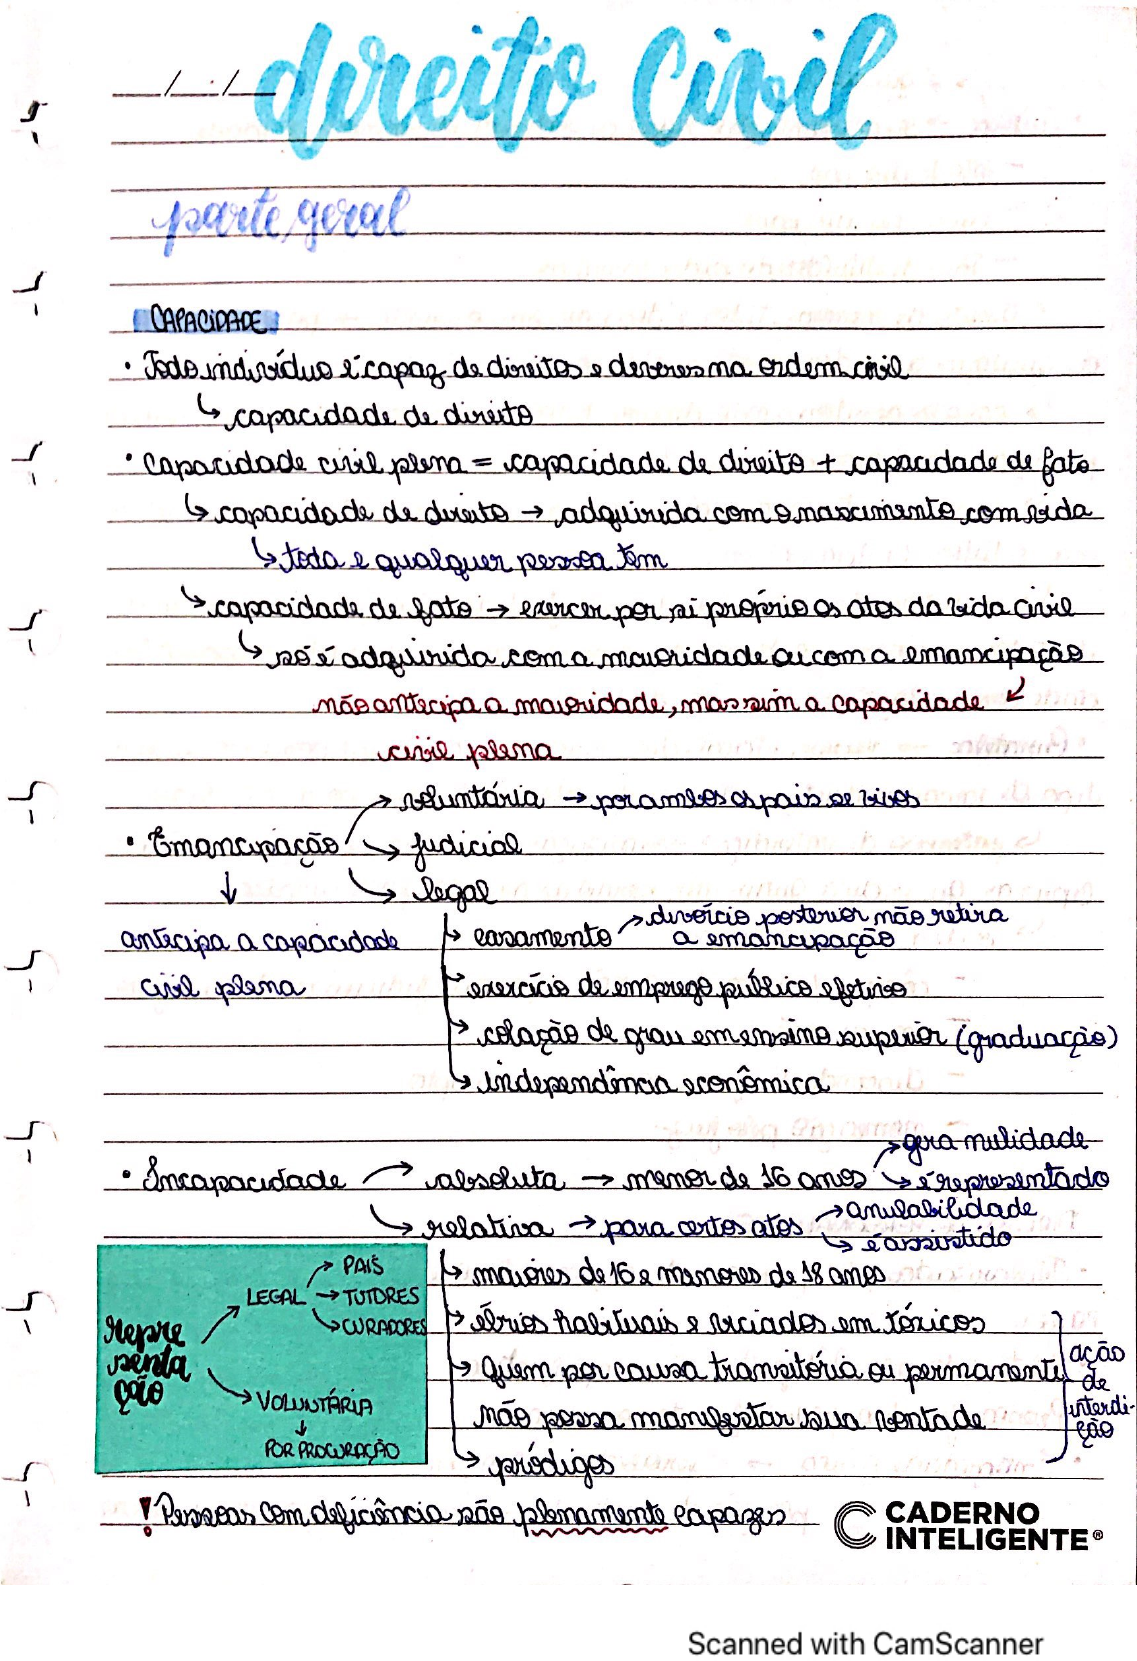 direito civil
parte geral
CAPACIDADE
• Todo indivíduo é capaz de direitos e deveres na ordem civil
↳ capacidade de direito
• Capacidade civil plena = capacidade de direito + capacidade de fato
↳ capacidade de direito → adquirida com o nascimento com vida
↳ toda e qualquer pessoa têm
↳ capacidade de fato → exercer por si próprio os atos da vida civil
↳ só é adquirida com a maioridade ou com a emancipação
não antecipa a maioridade, mas sim a capacidade
civil plena
→ voluntária → por ambos os pais se vivos
• Emancipação → judicial
→ legal
↓
antecipa a capacidade
civil plena
→ casamento → divórcio posterior não retira
a emancipação
→ exercício de emprego público efetivo
→ colação de grau em ensino superior (graduação)
→ independência econômica
• Incapacidade → absoluta → menor de 16 anos → gera nulidade
→ é representado
→ relativa → para certos atos → anulabilidade
→ é assistido
→ maiores de 16 e menores de 18 anos
→ ébrios habituais e viciados em tóxicos
→ quem por causa transitória ou permanente
não possa manifestar sua vontade
→ pródigos
ação
de
interdi-
ção
repre
senta
ção
LEGAL → PAIS
→ TUTORES
→ CURADORES
→ VOLUNTÁRIA
↓
POR PROCURAÇÃO
! Pessoas com deficiência são plenamente capazes
CADERNO
INTELIGENTE®
Scanned with CamScanner